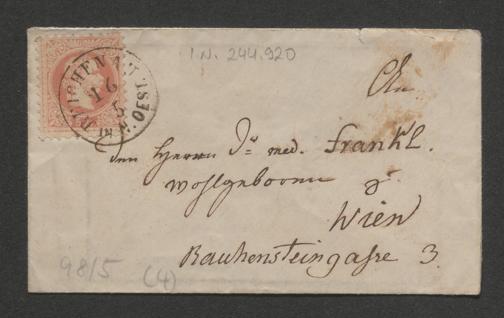 I.N. 244.920
An
den Herrn Dr med. Frankl.
Wohlgeboren
Wien
Rauhensteingasse 3
98/5 (4)